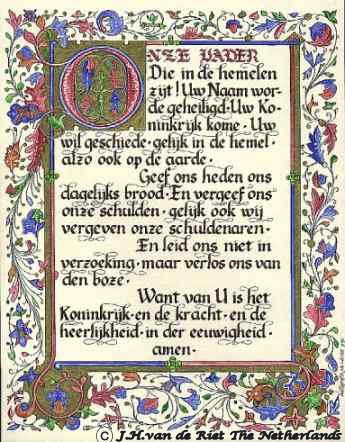 ONZE VADER
Die in de hemelen
zijt! Uw Naam wor-
de geheiligd· Uw Ko-
ninkrijk kome · Uw
wil geschiede · gelijk in de hemel ·
alzo ook op de aarde ·
Geef ons heden ons
dagelijks brood · En vergeef ons
onze schulden · gelijk ook wij
vergeven onze schuldenaren ·
En leid ons niet in
verzoeking · maar verlos ons van
den boze ·
Want van U is het
Koninkrijk · en de kracht · en de
heerlijkheid · in der eeuwigheid ·
amen ·
© J.H.van de Riet The Netherlands